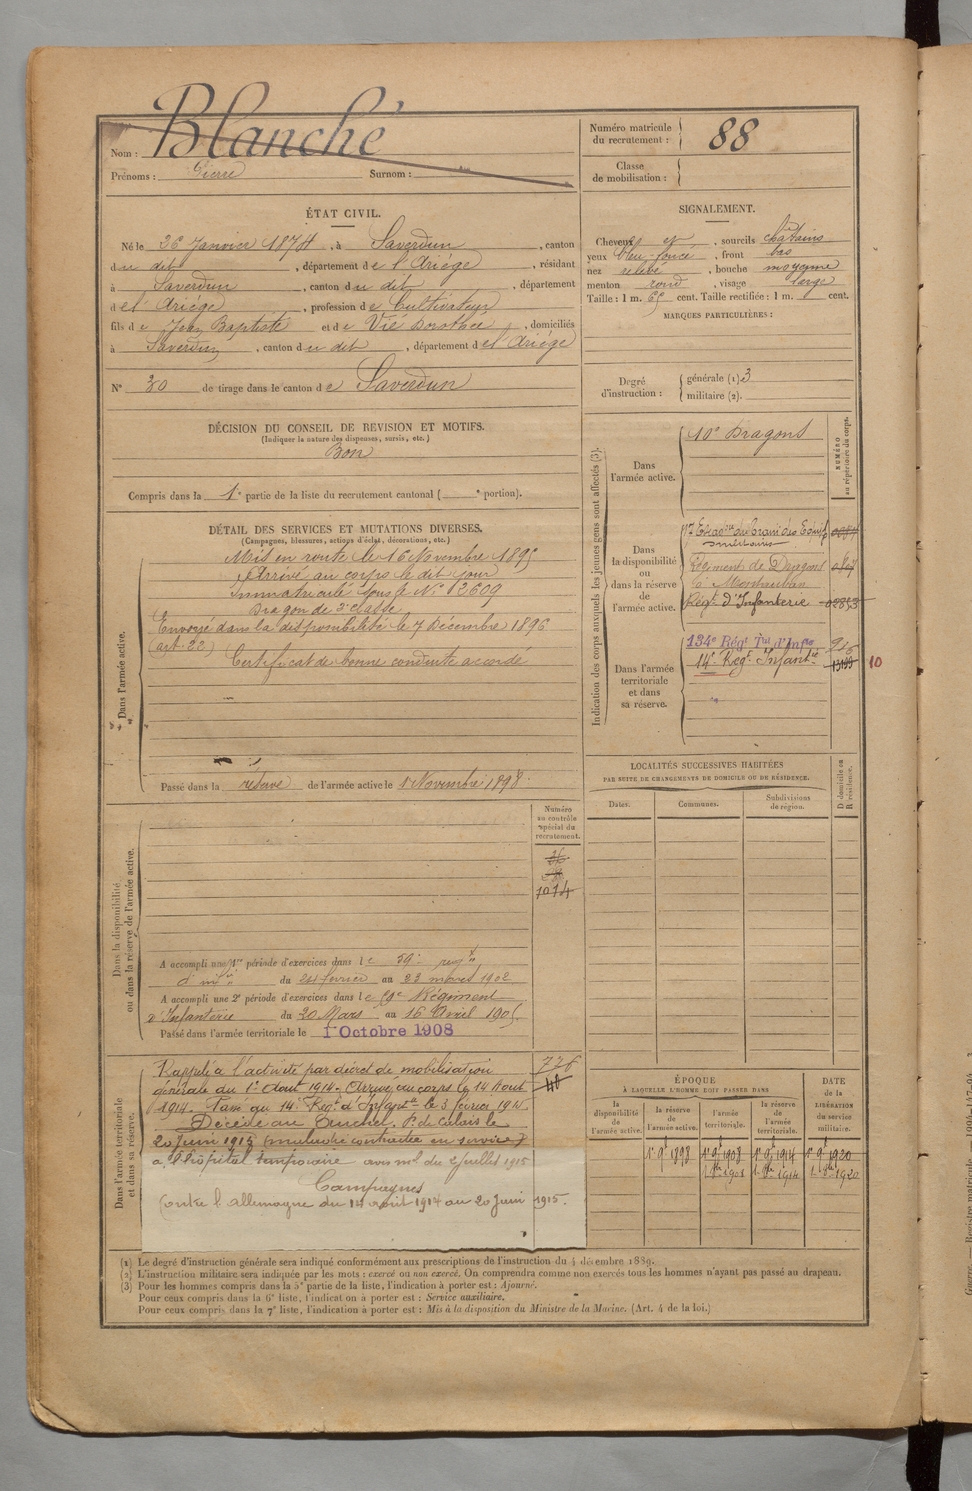 Blanché
Nom :
Prénoms : Pierre Surnom :
Numéro matricule du recrutement : 88
Classe de mobilisation :
ÉTAT CIVIL.
Né le 26 Janvier 1874, à Saverdun, canton
du dit, département de l'Ariège, résidant
à Saverdun, canton du dit, département
de l'Ariège, profession de Cultivateur
fils de Jean Baptiste et de Vié Dorothée, domiciliés
à Saverdun, canton du dit, département de l'Ariège
N° de tirage dans le canton de Saverdun
SIGNALEMENT.
Cheveux et, sourcils châtains
yeux bleu-foncé, front bas
nez relevé, bouche moyenne
menton rond, visage large
Taille : 1 m. cent. Taille rectifiée : 1 m. cent.
MARQUES PARTICULIÈRES :
Degré d'instruction : générale (1) 3
militaire (2).
DÉCISION DU CONSEIL DE REVISION ET MOTIFS.
(Indiquer la nature des dispenses, sursis, etc.)
Bon
Compris dans la 1e partie de la liste du recrutement cantonal ( e portion).
DÉTAIL DES SERVICES ET MUTATIONS DIVERSES.
(Campagnes, blessures, actions d'éclat, décorations, etc.)
Dans l'armée active.
Mis en route le 16 Novembre 1895
Arrivé au corps le dit jour
Immatriculé sous le N° 2609
Dragon de 2e classe
Envoyé dans la disponibilité le 7 Décembre 1896
(art. 22)
Certificat de bonne conduite accordé
Passé dans la réserve de l'armée active le 1 Novembre 1898
Indication des corps auxquels les jeunes gens sont affectés (3).
NUMÉRO au répertoire du corps.
Dans l'armée active.
10e Dragons
Dans la disponibilité ou dans la réserve de l'armée active.
militaires
Régiment de Dragons
Montauban
Régt d'Infanterie
Dans l'armée territoriale et dans sa réserve.
134e Régt Tal d'Infie
14e Regt Infantie
10
LOCALITÉS SUCCESSIVES HABITÉES
PAR SUITE DE CHANGEMENTS DE DOMICILE OU DE RÉSIDENCE.
Dates. Communes. Subdivisions de région.
D domicile ou R résidence.
Numéro au contrôle spécial du recrutement.
1014
Dans la disponibilité ou dans la réserve de l'armée active.
A accompli une 1re période d'exercices dans le 59e
du 24 février au 23 mars 1902
A accompli une 2e période d'exercices dans le Régiment
d'Infanterie du 20 Mars au 16 Avril 1905
Passé dans l'armée territoriale le 1 Octobre 1908
Dans l'armée territoriale et dans sa réserve.
Rappelé à l'activité par décret de mobilisation
générale du 1er Aout 1914. Arrivé au corps le 14 Aout
1914. Passé au 14e Régt d'Infantie le 3 février 1915
Décédé au Touchet, P. de Calais le
20 Juin 1915 (maladie contractée en service)
a l'hôpital temporaire avis ml du 2 juillet 1915
Campagnes
Contre l'allemagne du 14 août 1914 au 20 Juin 1915.
ÉPOQUE
À LAQUELLE L'HOMME DOIT PASSER DANS
la disponibilité de l'armée active.
la réserve de l'armée active.
l'armée territoriale.
la réserve de l'armée territoriale.
DATE de la LIBÉRATION du service militaire.
(1) Le degré d'instruction générale sera indiqué conformément aux prescriptions de l'instruction du 4 décembre 1889.
(2) L'instruction militaire sera indiquée par les mots : exercé ou non exercé. On comprendra comme non exercés tous les hommes n'ayant pas passé au drapeau.
(3) Pour les hommes compris dans la 5e partie de la liste, l'indication à porter est : Ajourné.
Pour ceux compris dans la 6e liste, l'indication à porter est : Service auxiliaire.
Pour ceux compris dans la 7e liste, l'indication à porter est : Mis à la disposition du Ministre de la Marine. (Art. 4 de la loi.)